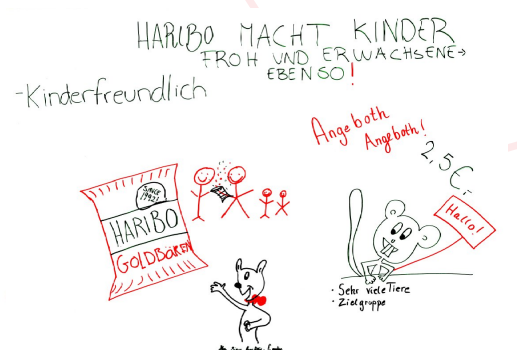 HARIBO MACHT KINDER
FROH UND ERWACHSENE→
EBENSO!
-Kinderfreundlich
Angeboth
Angeboth!
2,5€,-
Hallo!
SINCE
HARIBO
GOLDBÄREN
· Sehr viele Tiere
· Zielgruppe